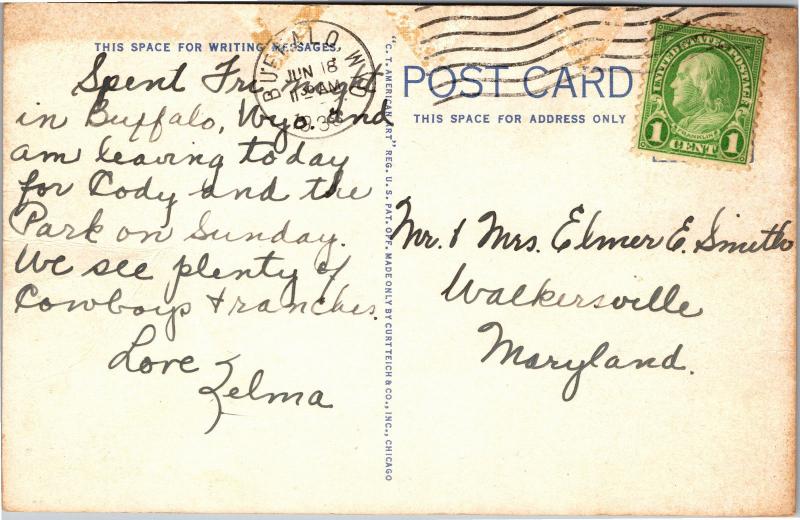 THIS SPACE FOR WRITING MESSAGES.
Spent Fri. night
in Buffalo, Wyo. and
am leaving today
for Cody and the
Park on Sunday.
We see plenty of
Cowboys + ranches.
Love
Zelma
BUFFALO WYO
JUN 18
11 30 AM
"C. T. AMERICAN ART" REG. U. S. PAT. OFF. MADE ONLY BY CURT TEICH & CO., INC., CHICAGO
POST CARD
THIS SPACE FOR ADDRESS ONLY
UNITED STATES POSTAGE
FRANKLIN
1 CENT 1
Mr. & Mrs. Elmer E. Smith
Walkersville
Maryland.